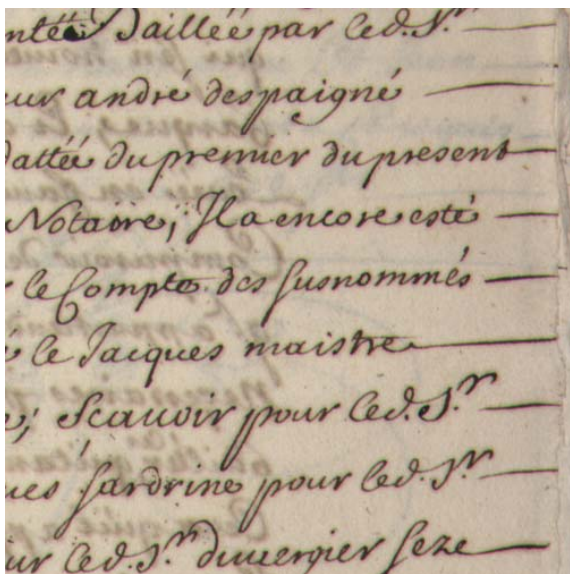 daillée par led. Sr.
andré despaigné
dattée du premier du present
Notaire; Il a encore esté
le Compte des susnommés
le Jacques maistre
Scauoir pour led. Sr.
sardrine pour led. Sr.
led. Sr. duuergier seze